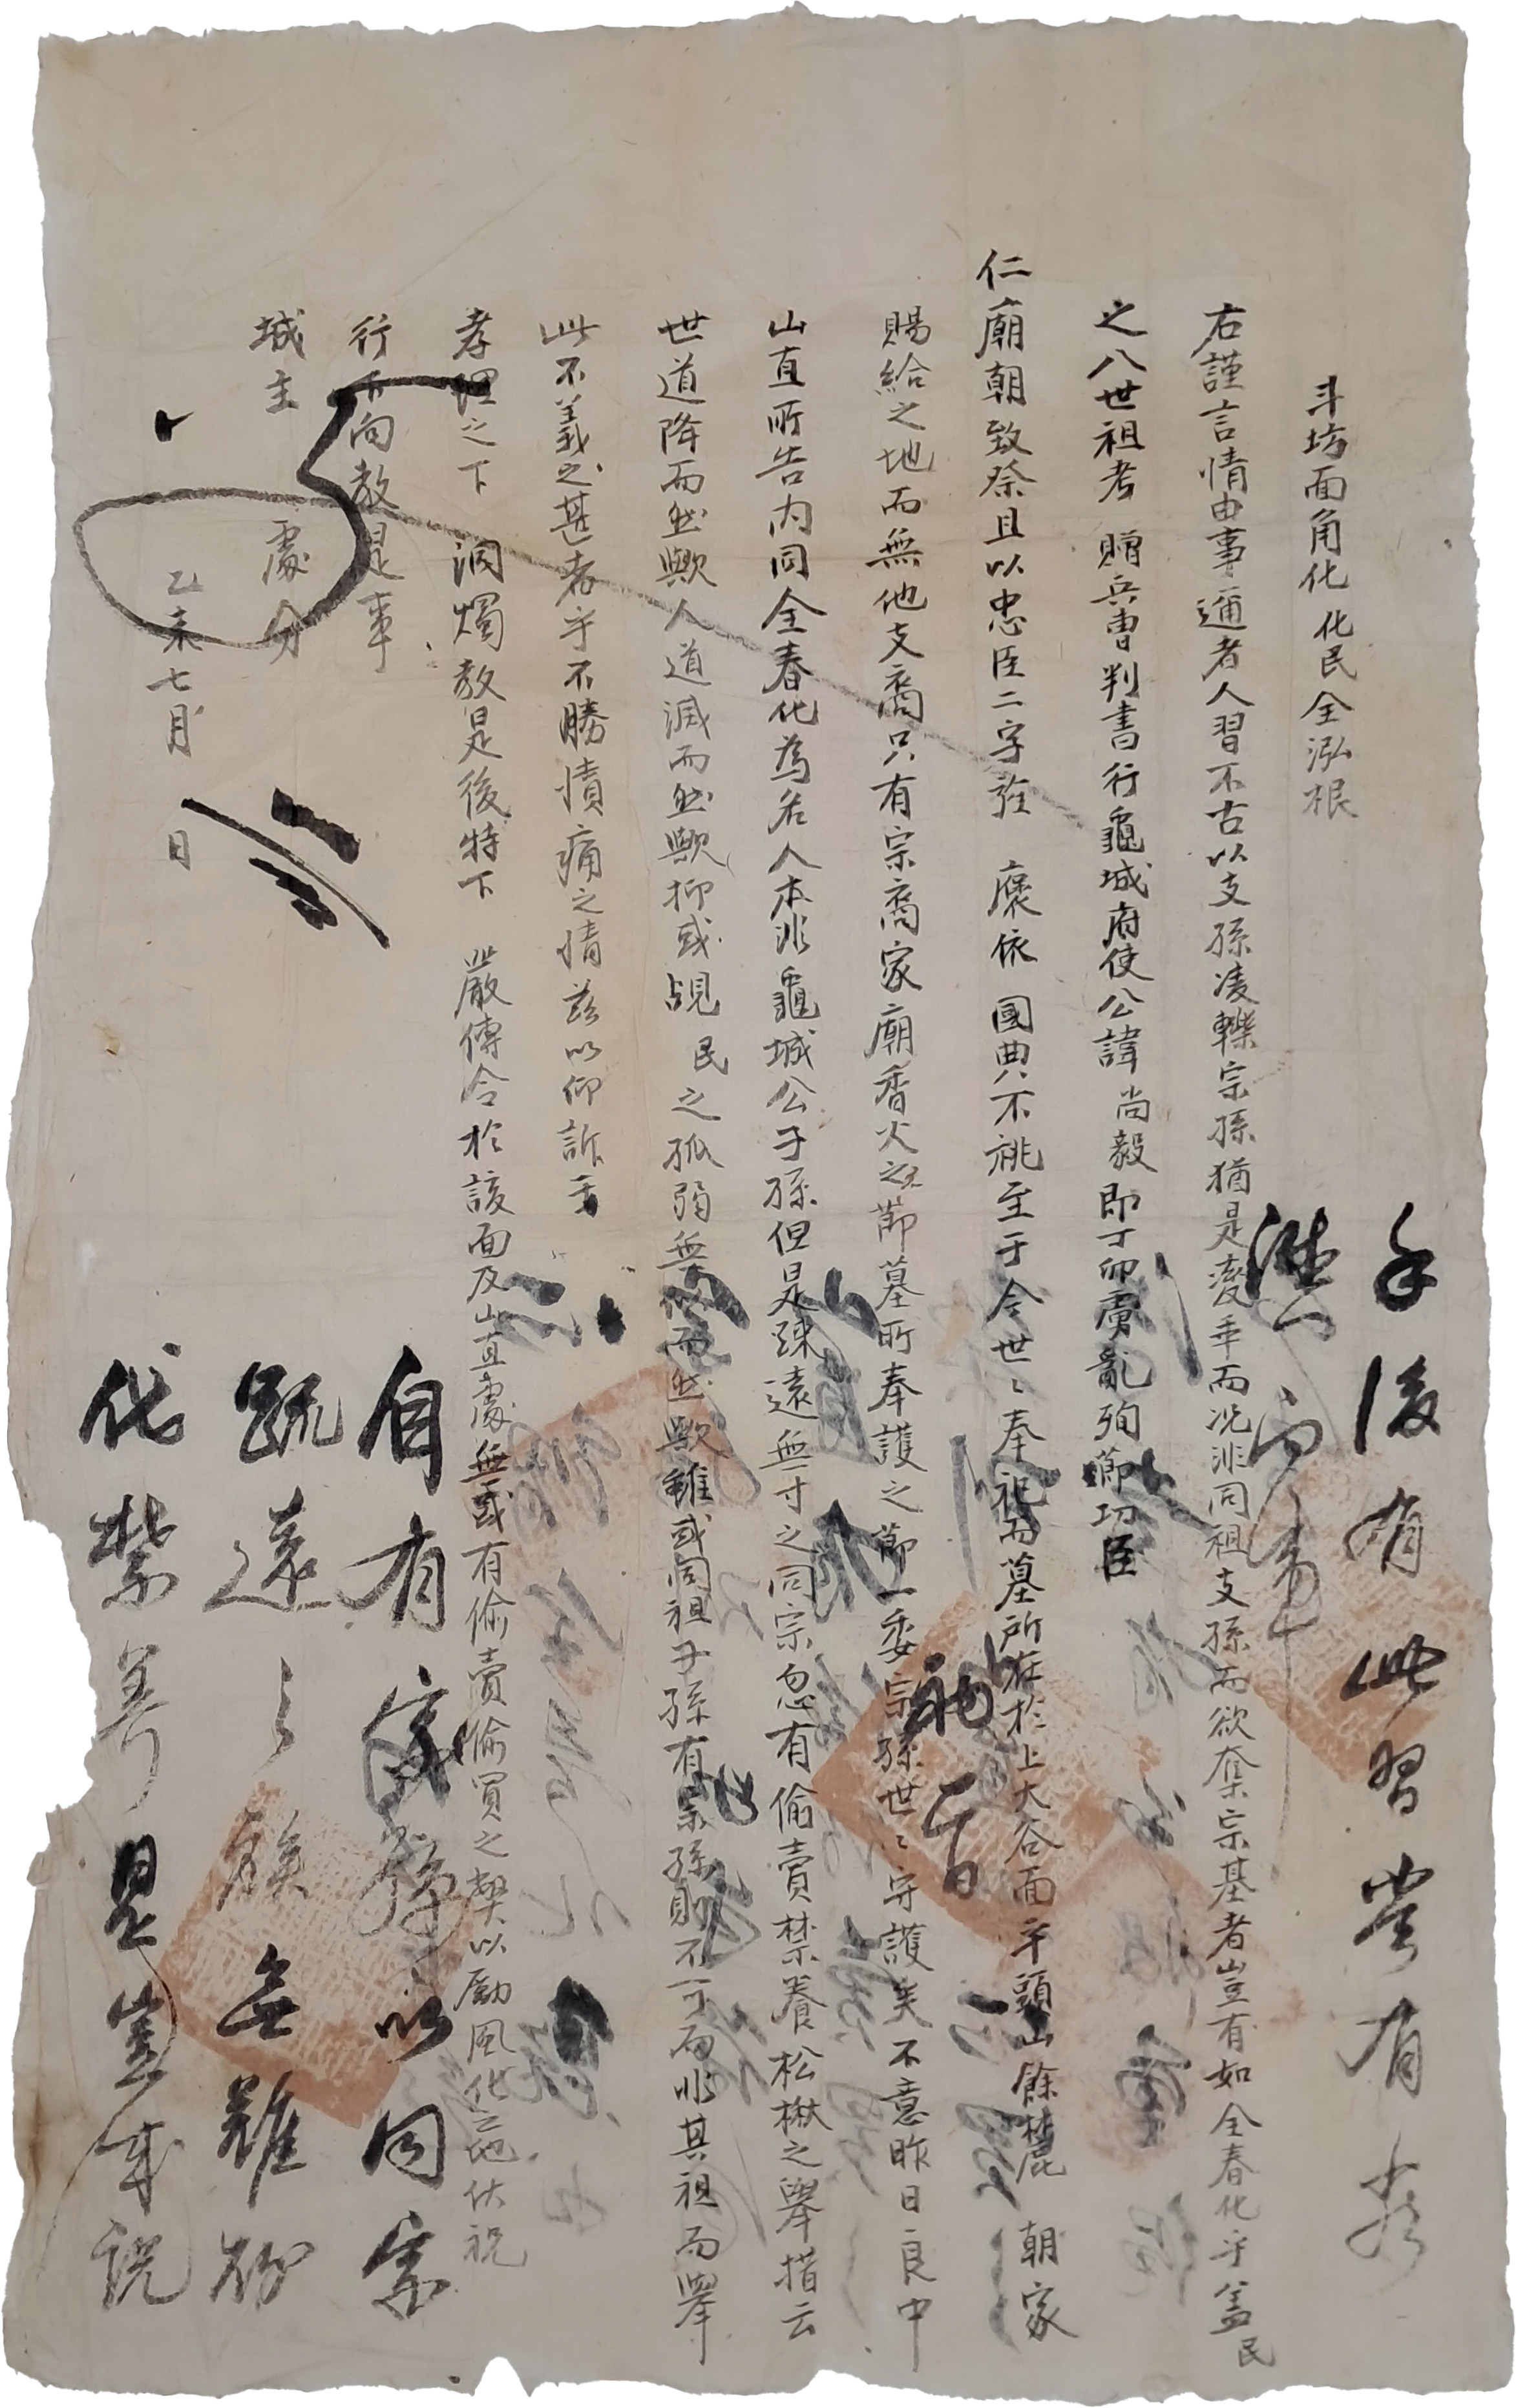 斗坊面角化 化民全泓根
右謹言情由事邇者人習不古以支孫凌轢宗孫猶是乖而况非同祖支孫而欲奪宗基者豈有如全春化乎盖民
之八世祖考 贈兵曹判書行龜城府使公諱 尚毅 即丁卯虜亂殉節功臣
仁廟朝致祭且以忠臣二字旌 褒依 國典不祧至于今世〻奉祀而墓所在於上大谷面平頭山餘麓 朝家
賜給之地而無他支裔只有宗裔家廟香火之節墓所奉護之節一委宗孫世〻守護矣不意昨日良中
山直所告内同全春化爲名人本非龜城公子孫但是踈遠無寸之同宗忽有偷賣禁養松楸之舉措云
世道降而然歟人道滅而然歟抑或覘 民之孤弱無依而然歟雖或同祖子孫有宗孫則不可而非其祖而舉
此不義之甚者乎不勝憤痛之情玆以仰訴于
孝理之下 洞燭教是後特下 嚴傳令於該面及山直處無或有偷賣偷買之弊以勵風化之地伏祝
行下向教是事
城主 處分
乙未七月 日
自有宗孫以同宗
踈遠之族無難斫
伐禁養是豈成說
後有此習豈有
向事
初六日